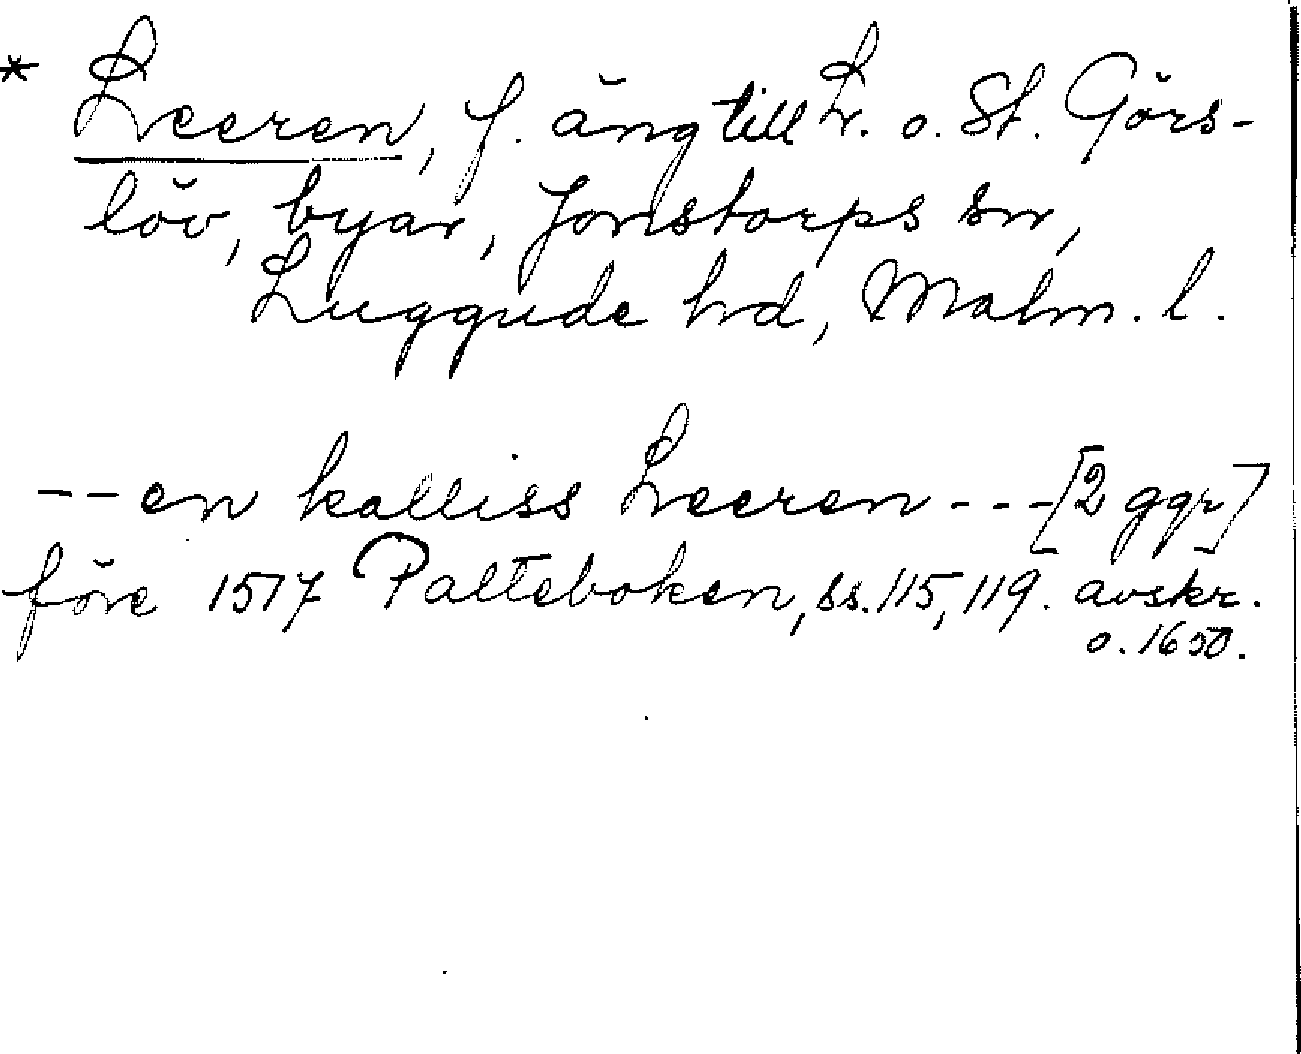 * Leeren, f. äng till L. o. St. Görs-
löv, byar, Jonstorps sn,
Luggude hd, Malm. l.
-- en kalliss Leeren --- [2 ggr]
före 1517 Palteboken, ss. 115, 119. avskr.
o. 1650.